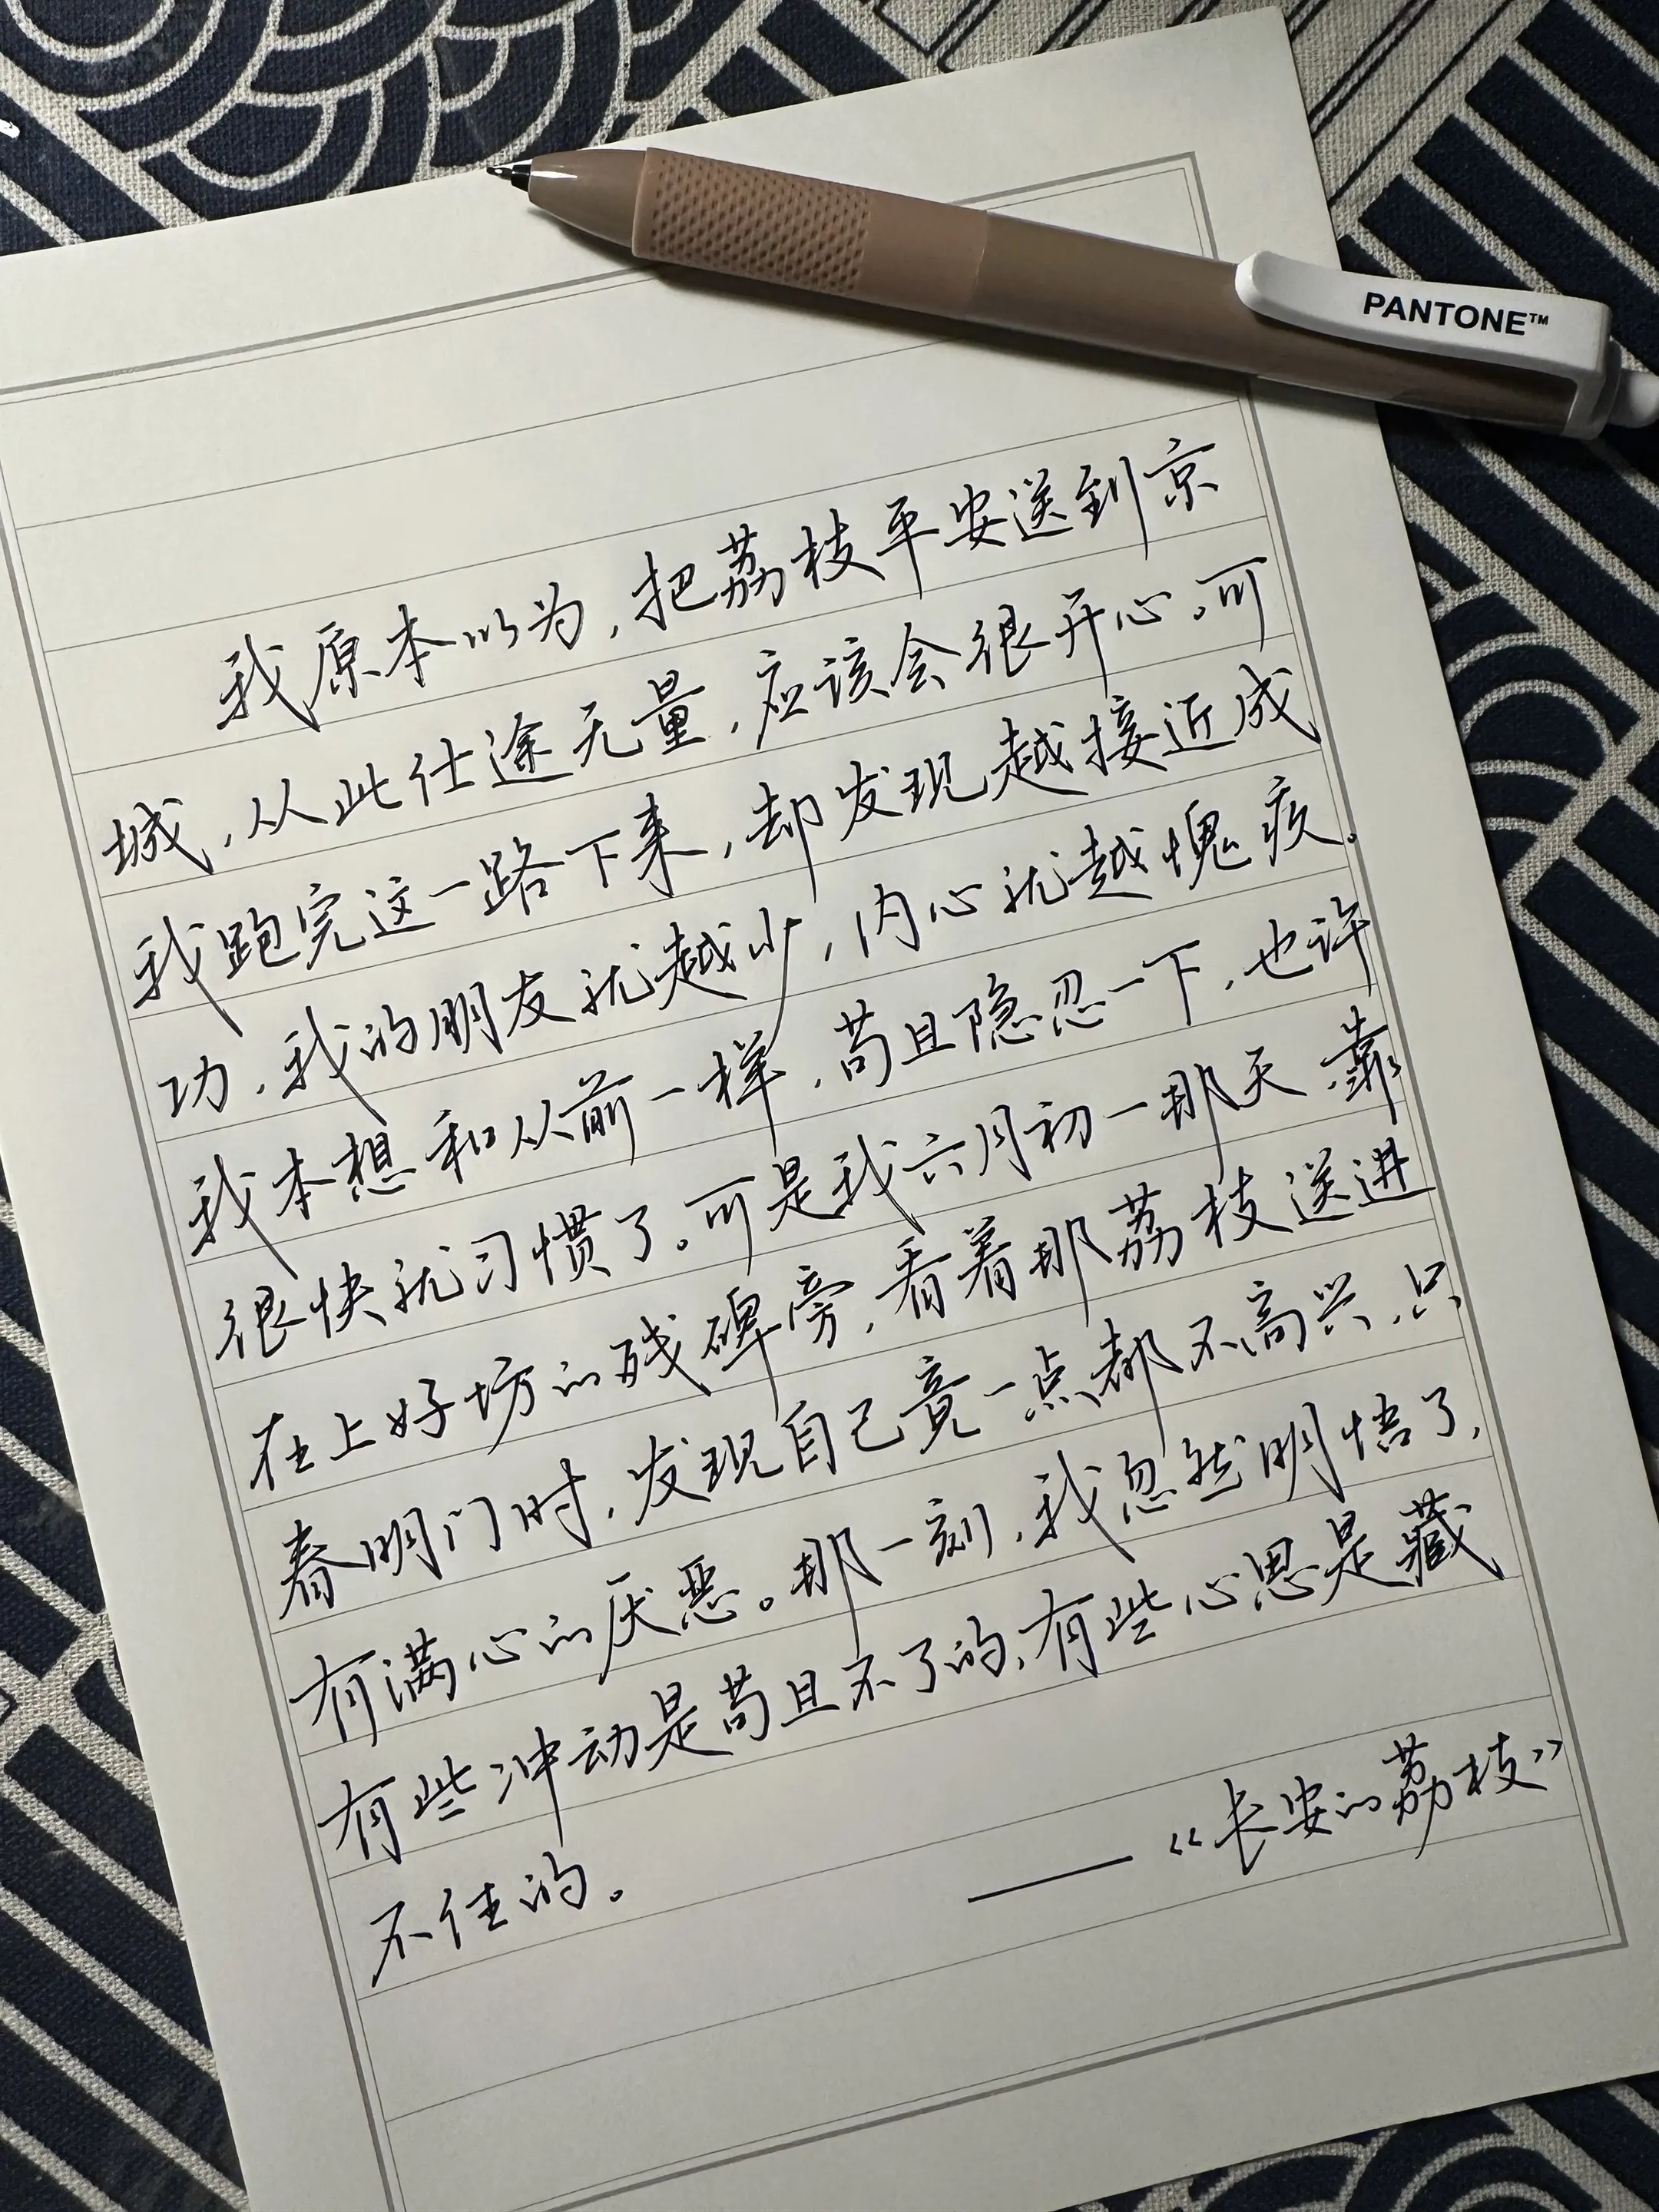 PANTONE™
我原本以为,把荔枝平安送到京
城,从此仕途无量,应该会很开心。可
我跑完这一路下来,却发现越接近成
功,我的朋友就越少,内心就越愧疚。
我本想和从前一样,苟且隐忍一下,也许
很快就习惯了。可是我六月初一那天,靠
在上好坊的残碑旁,看着那荔枝送进
春明门时,发现自己竟一点都不高兴,只
有满心的厌恶。那一刻,我忽然明悟了,
有些冲动是苟且不了的,有些心思是藏
不住的。
——《长安的荔枝》